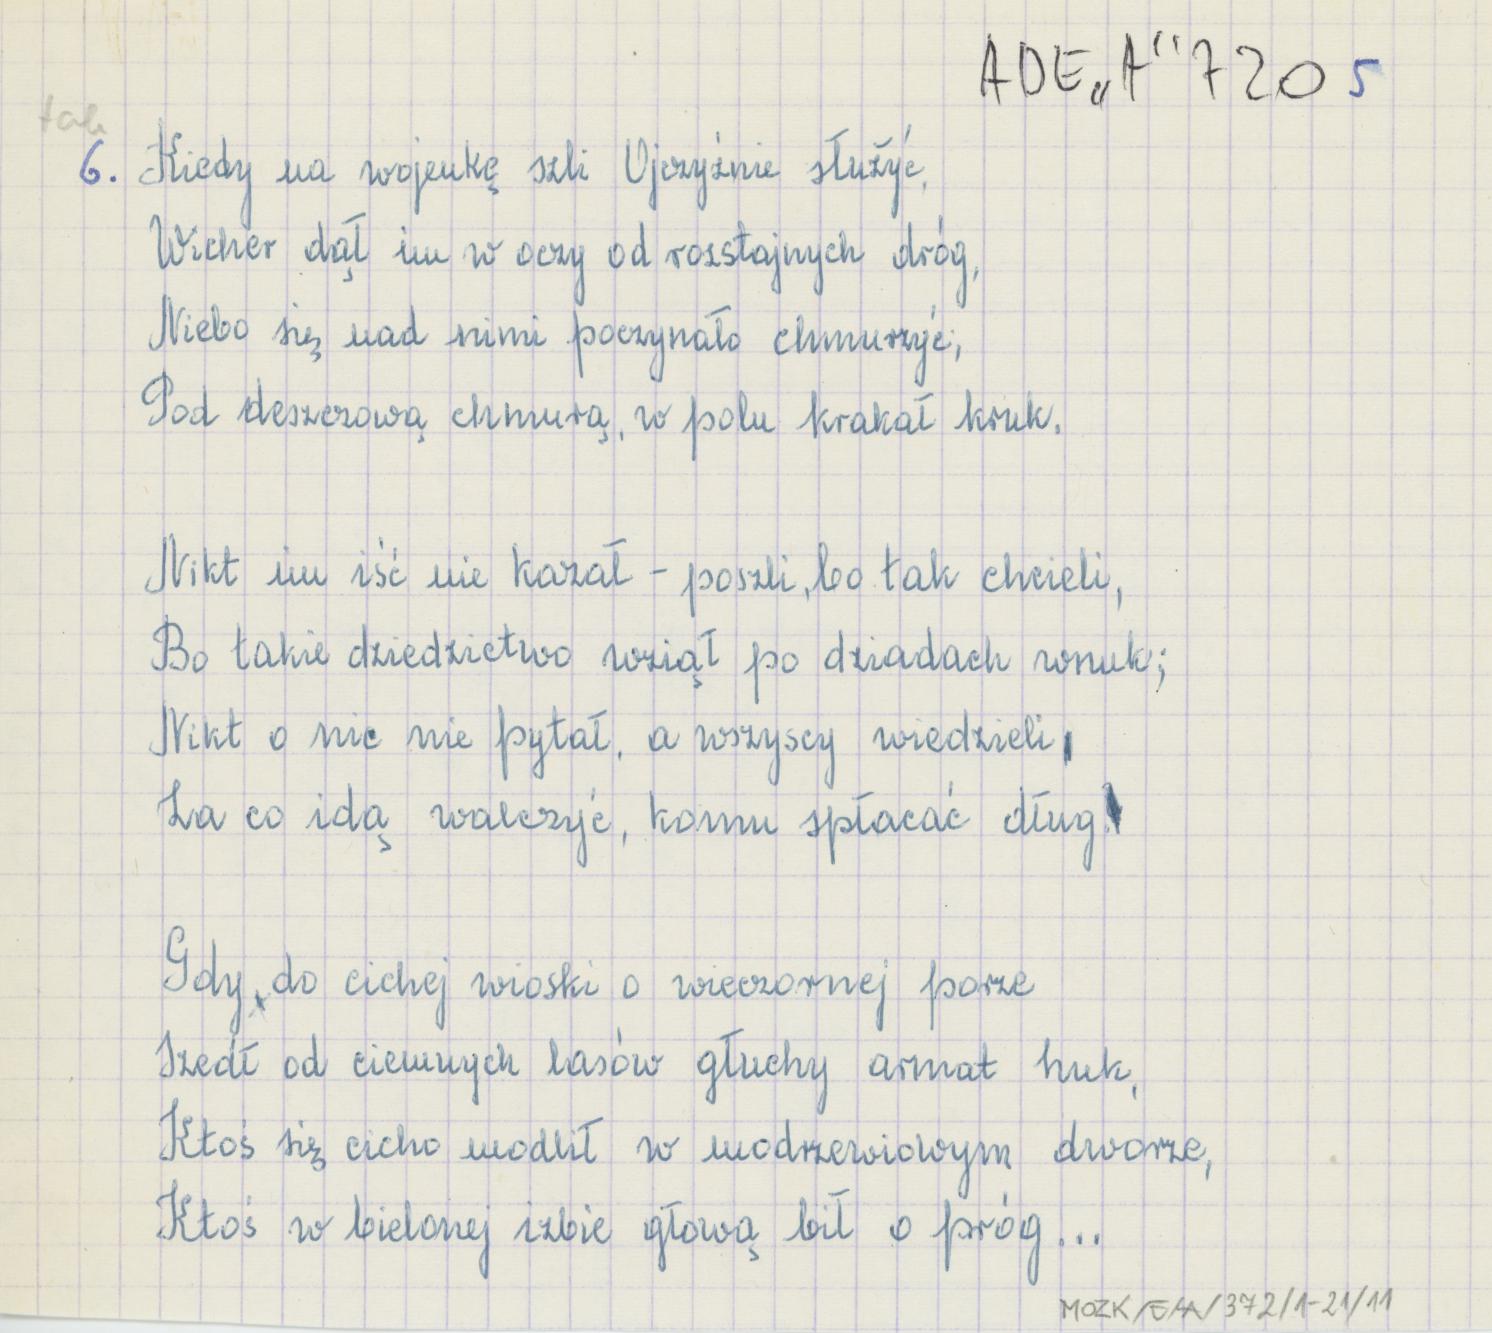 ADE „A" 720 5
tak
6. Kiedy na wojenkę szli Ojczyźnie służyć,
Wicher dął im w oczy od rozstajnych dróg,
Niebo się nad nimi poczynało chmurzyć;
Pod deszczową chmurą, w polu krakał kruk.
Nikt im iść nie kazał – poszli, bo tak chcieli,
Bo takie dziedzictwo wziął po dziadach wnuk;
Nikt o nic nie pytał, a wszyscy wiedzieli,
Za co idą walczyć, komu spłacać dług!
Gdy do cichej wioski o wieczornej porze
Szedł od ciemnych lasów głuchy armat huk,
Ktoś się cicho modlił w modrzewiowym dworze,
Ktoś w bielonej izbie głową bił o próg...
MOZK/E/A/372/1-21/11